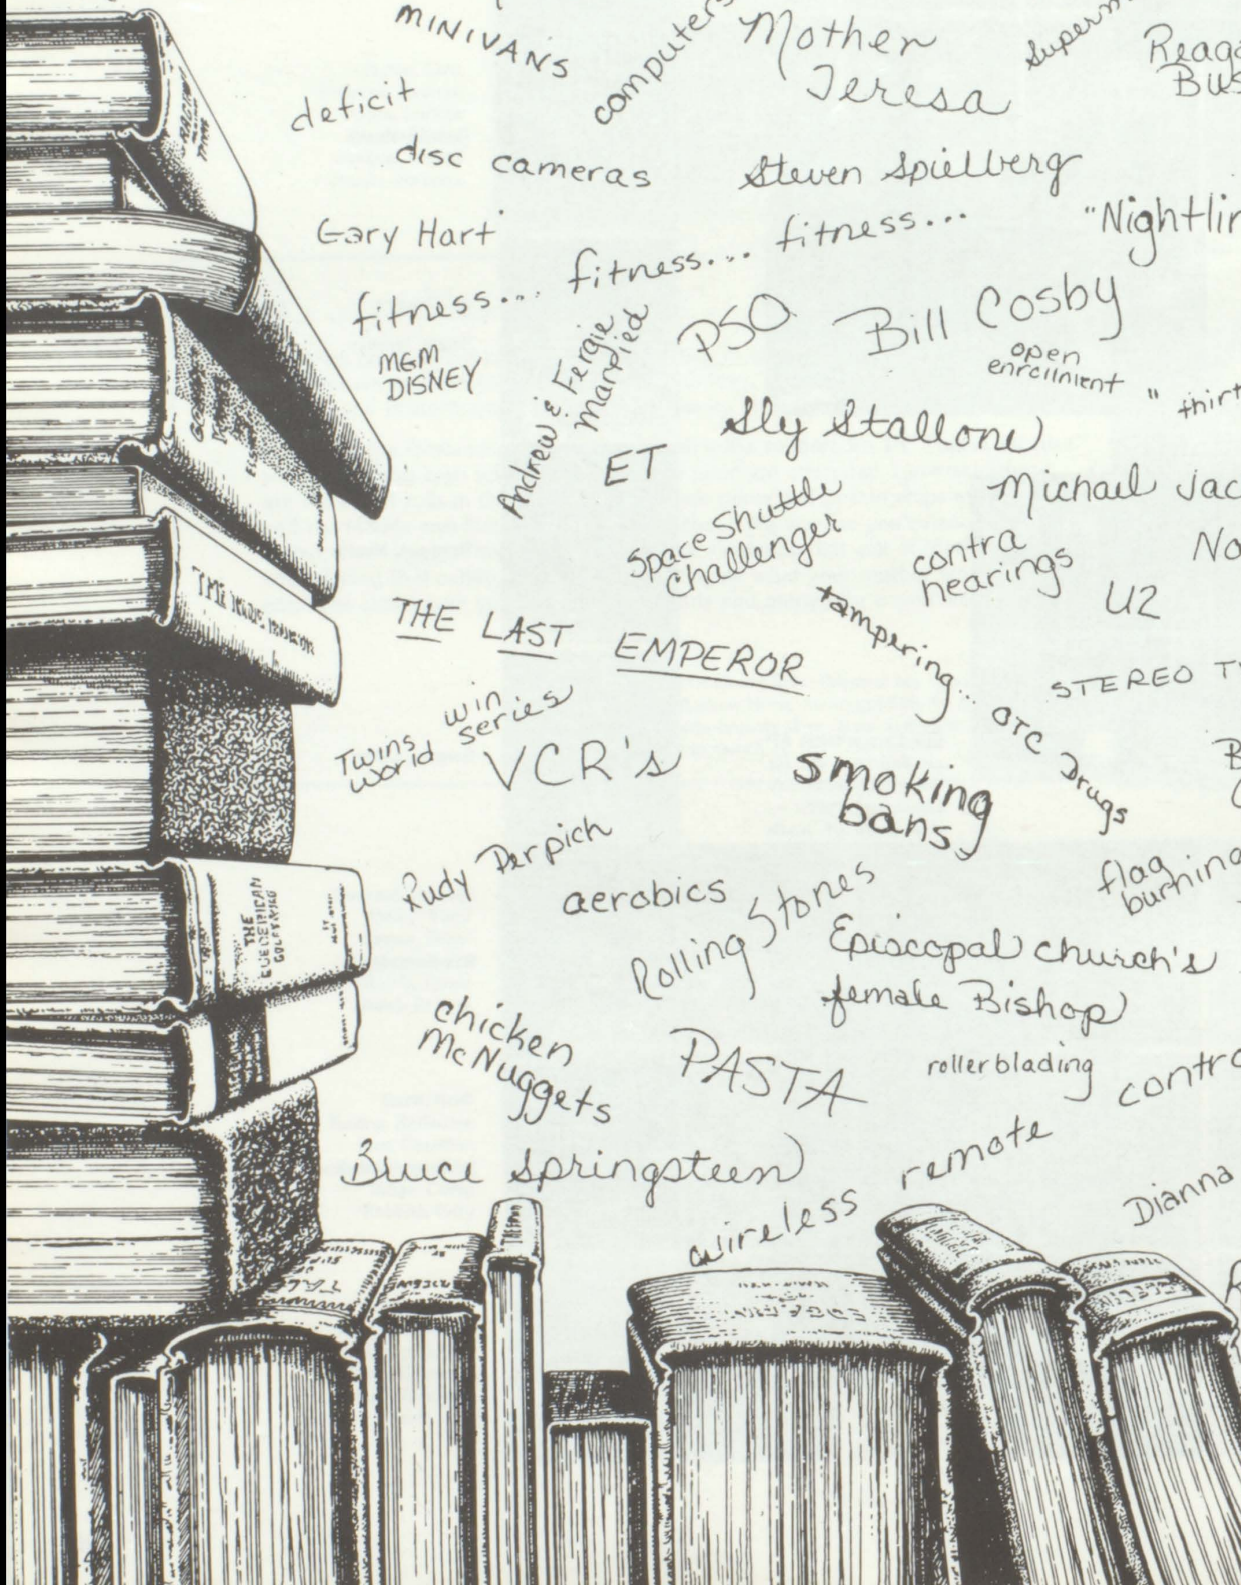 MINIVANS
computers
Mother
Teresa
Reaga
Bus
deficit
disc cameras
Steven Spielberg
Gary Hart
fitness... fitness... fitness...
"Nightlin
MGM
DISNEY
Andrew & Fergie
married
PSO
Bill Cosby
open
enrollment
"thirt
Sly Stallone
ET
Michael Jac
Space Shuttle
Challenger
contra
hearings
No
U2
THE LAST EMPEROR
tampering... OTC Drugs
STEREO T
Twins win
world series
VCR's
smoking
bans
Rudy Perpich
aerobics
Rolling Stones
flag
burning
Episcopal church's
female Bishop
chicken
McNuggets
PASTA
rollerblading
Bruce Springsteen
wireless remote contro
Dianna
THE